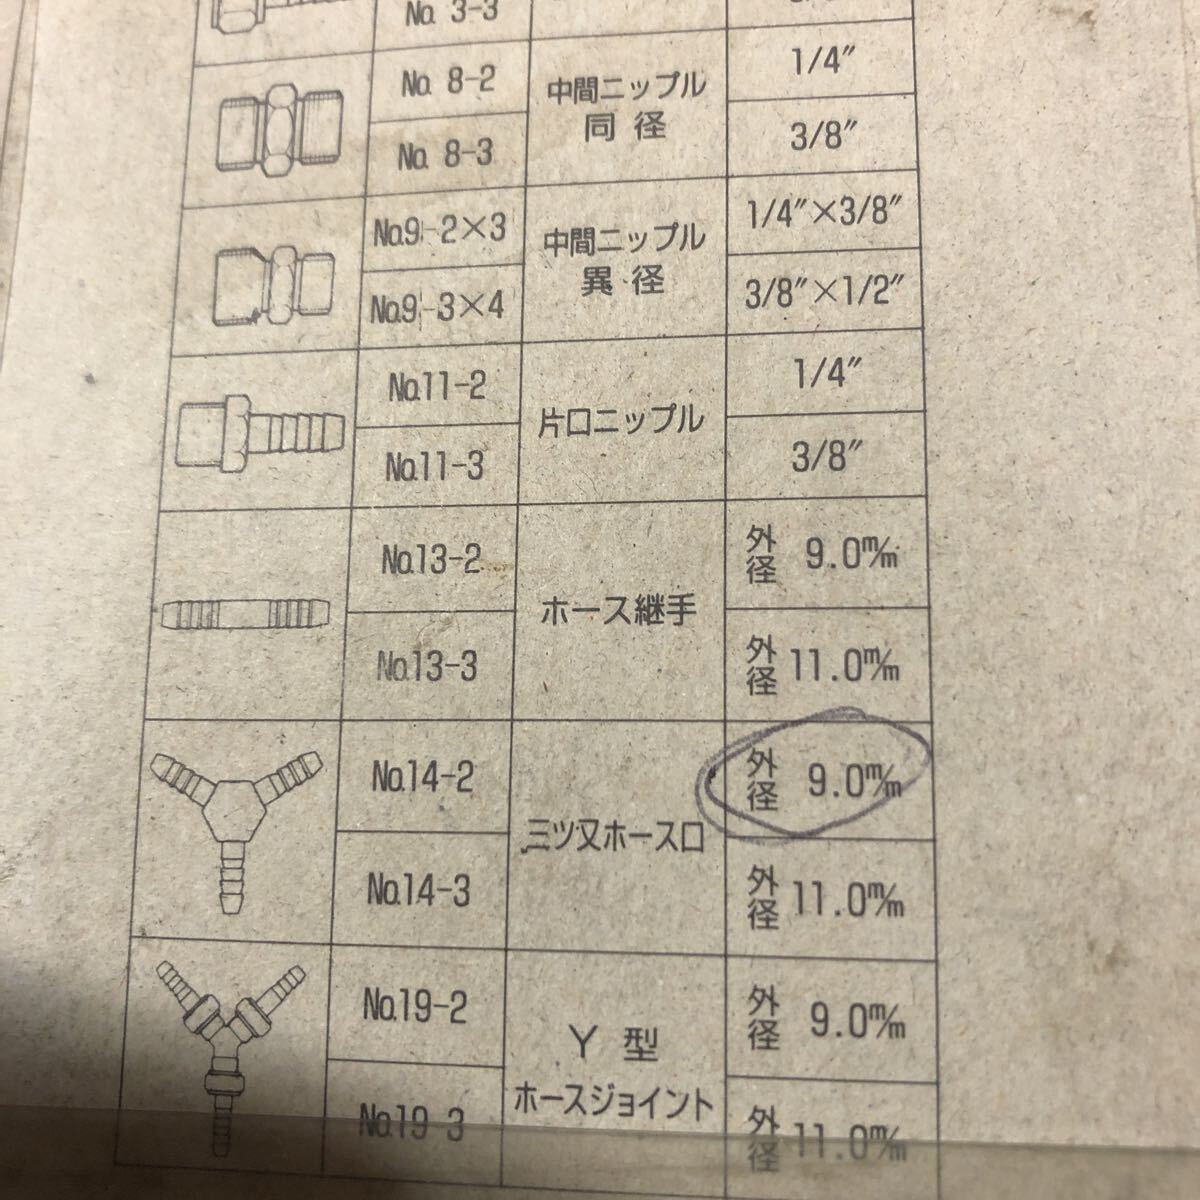 No. 3-3
No. 8-2
中間ニップル
同径
1/4″
No. 8-3
3/8″
No.9-2×3
中間ニップル
異径
1/4″×3/8″
No.9-3×4
3/8″×1/2″
No.11-2
片口ニップル
1/4″
No.11-3
3/8″
No.13-2
ホース継手
外径 9.0m/m
No.13-3
外径 11.0m/m
No.14-2
三ツ又ホース口
外径 9.0m/m
No.14-3
外径 11.0m/m
No.19-2
Y型
ホースジョイント
外径 9.0m/m
No.19-3
外径 11.0m/m